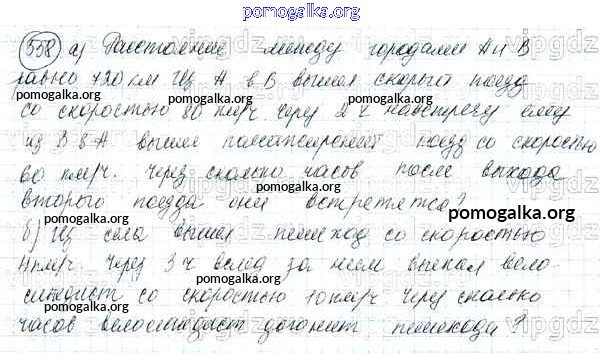 pomogalka.org
558 а) Расстояние между городами А и В
равно 720 км Из А в В вышел скорый поезд
pomogalka.org pomogalka.org
со скоростью 80 км/ч. Через 2 ч навстречу ему
из В в А вышел пассажирский поезд со скоростью
60 км/ч. Через сколько часов после выхода
pomogalka.org
второго поезда они встретятся?
pomogalka.org pomogalka.org
б) Из села вышел пешеход со скоростью
4 км/ч. Через 3 ч вслед за ним выехал вело-
pomogalka.org
сипедист со скоростью 10 км/ч Через сколько
pomogalka.org
часов велосипедист догонит пешехода?
pomogalka.org